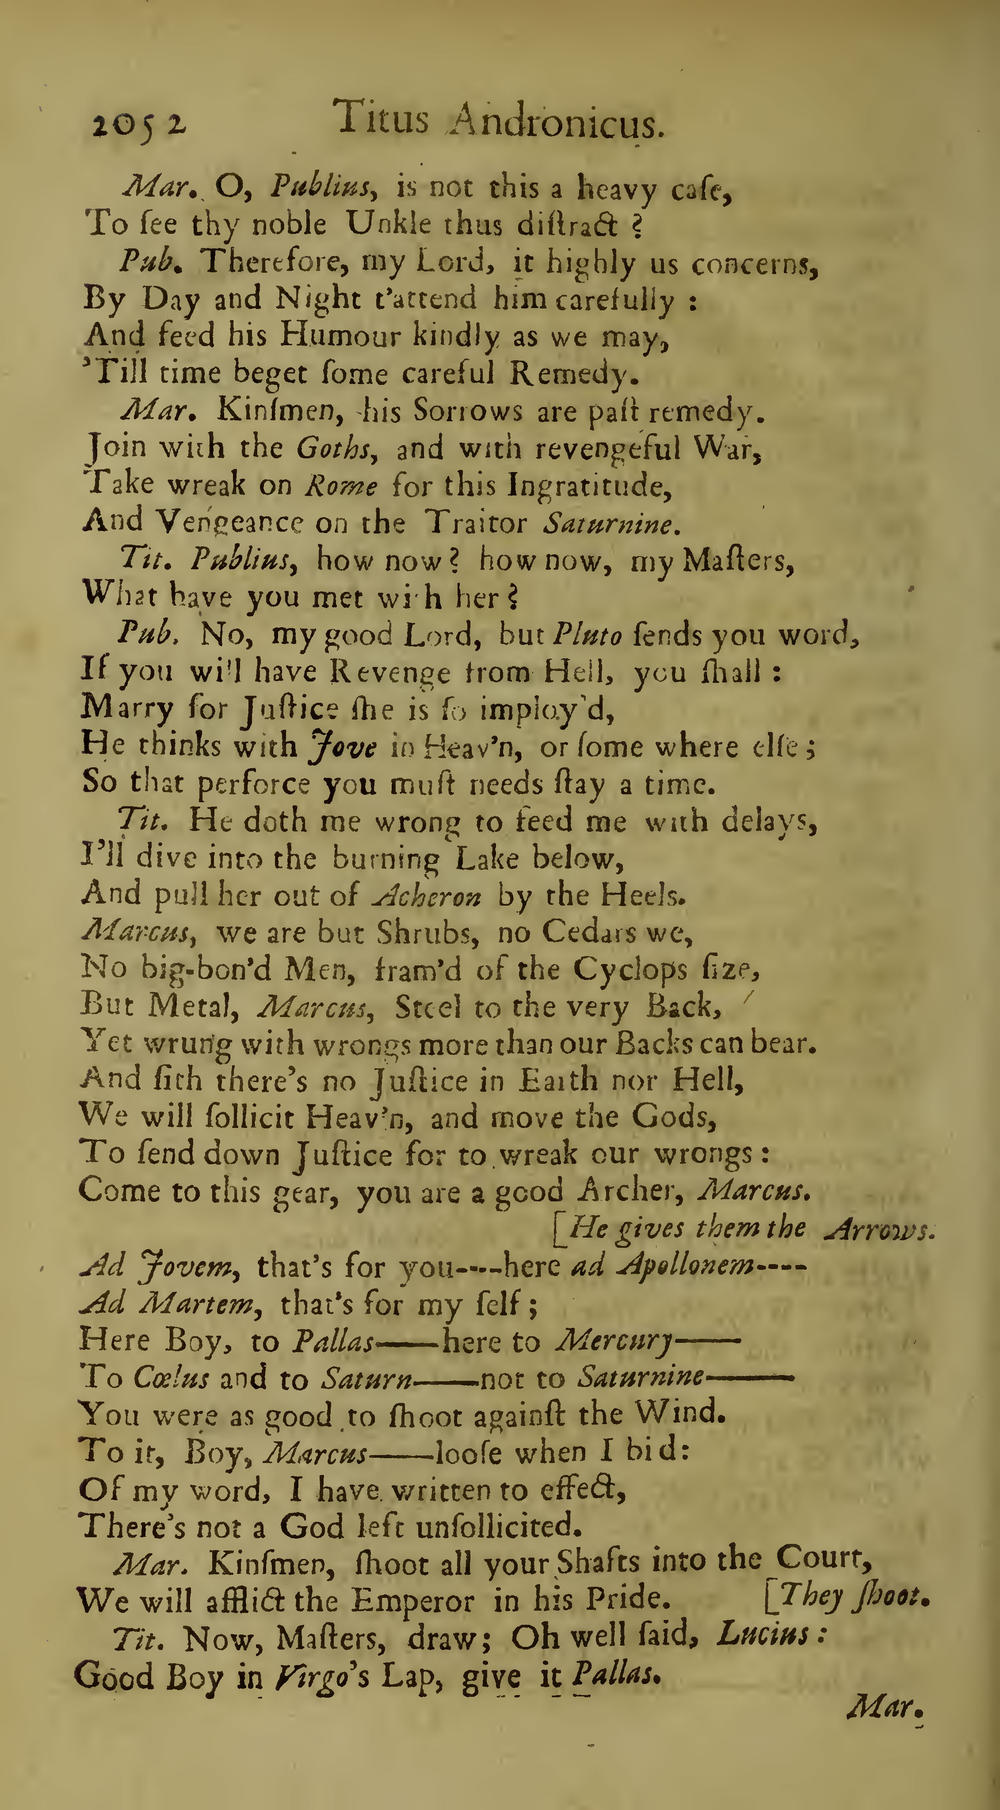 2052 Titus Andronicus.
Mar. O, Publius, is not this a heavy caſe,
To ſee thy noble Unkle thus diſtract ?
Pub. Therefore, my Lord, it highly us concerns,
By Day and Night t'attend him carefully :
And feed his Humour kindly as we may,
'Till time beget ſome careful Remedy.
Mar. Kinſmen, his Sorrows are paſt remedy.
Join with the Goths, and with revengeful War,
Take wreak on Rome for this Ingratitude,
And Vengeance on the Traitor Saturnine.
Tit. Publius, how now? how now, my Maſters,
What have you met wi h her ?
Pub. No, my good Lord, but Pluto ſends you word,
If you will have Revenge from Hell, you ſhall :
Marry for Juſtice ſhe is ſo imploy'd,
He thinks with Jove in Heav'n, or ſome where elſe ;
So that perforce you muſt needs ſtay a time.
Tit. He doth me wrong to feed me with delays,
I'll dive into the burning Lake below,
And pull her out of Acheron by the Heels.
Marcus, we are but Shrubs, no Cedars we,
No big-bon'd Men, fram'd of the Cyclops ſize,
But Metal, Marcus, Steel to the very Back,
Yet wrung with wrongs more than our Backs can bear.
And ſith there's no Juſtice in Earth nor Hell,
We will ſollicit Heav'n, and move the Gods,
To ſend down Juſtice for to wreak our wrongs :
Come to this gear, you are a good Archer, Marcus.
[He gives them the Arrows.
Ad Jovem, that's for you----here ad Apollonem----
Ad Martem, that's for my ſelf ;
Here Boy, to Pallas——here to Mercury——
To Cœlus and to Saturn——not to Saturnine——
You were as good to ſhoot againſt the Wind.
To it, Boy, Marcus——looſe when I bid:
Of my word, I have written to effect,
There's not a God left unſollicited.
Mar. Kinſmen, ſhoot all your Shafts into the Court,
We will afflict the Emperor in his Pride. [They ſhoot.
Tit. Now, Maſters, draw; Oh well ſaid, Lucius :
Good Boy in Virgo's Lap, give it Pallas.
Mar.